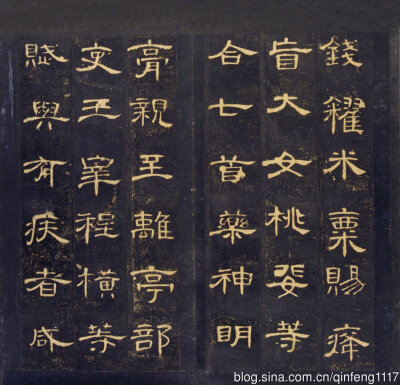 錢糴米粟賜癃
盲大女桃婓等
合七首藥神明
膏親至離亭部
吏王宰程橫等
賦與有疾者咸
blog.sina.com.cn/qinfeng1117